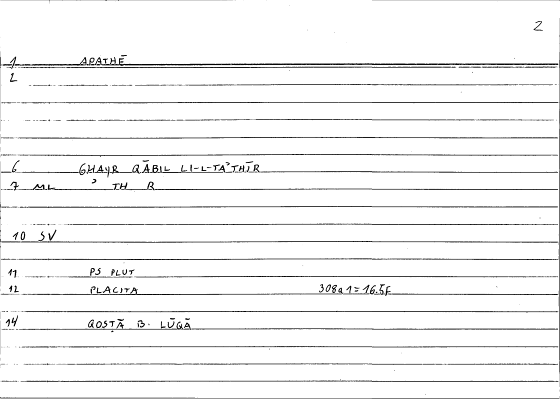 2
1 APATHĒ
2
6 GHAYR QĀBIL LI-L-TAʾTHĪR
7 ML ʾ TH R
10 SV
11 PS PLUT
12 PLACITA 308a1 = 16.5f
14 QOSṬĀ B. LŪQĀ